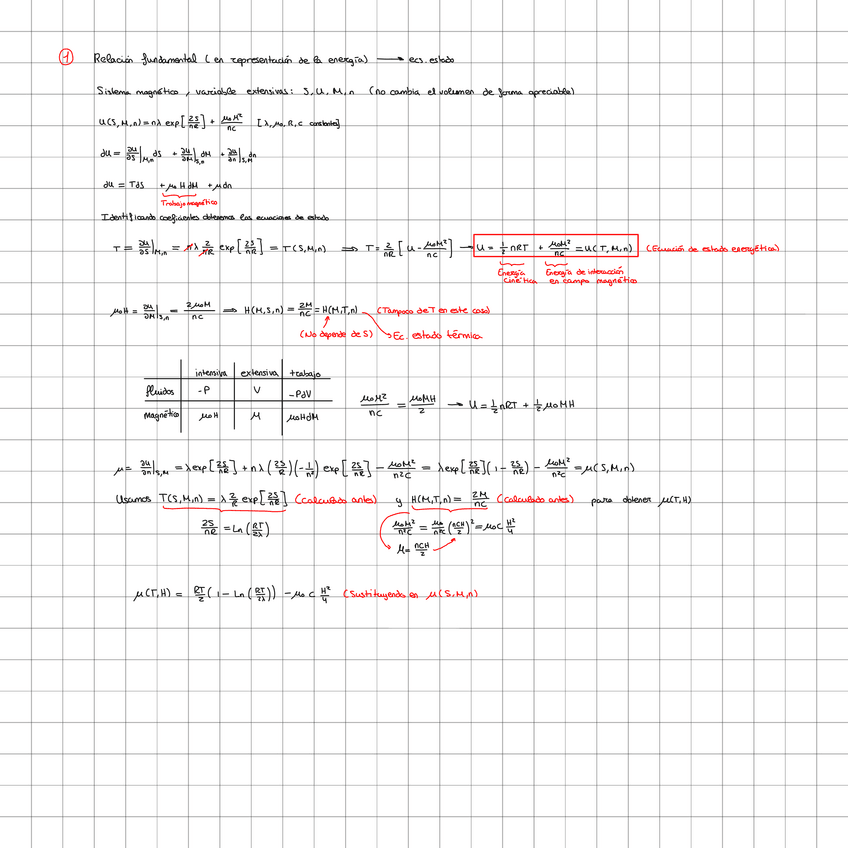 1 Relación fundamental (en representación de la energía) ⟶ ecs. estado
Sistema magnético, variable extensivas: S, U, M, n (no cambia el volumen de forma apreciable)
U(S,M,n) = nλ exp[2S/nR] + μ₀M²/nC [λ, μ₀, R, C constantes]
dU = ∂U/∂S|M,n dS + ∂U/∂M|S,n dM + ∂U/∂n|S,M dn
dU = TdS + μ₀HdM + μdn
Trabajo magnético
Identificando coeficientes obtenemos las ecuaciones de estado
T = ∂U/∂S|M,n = nλ 2/nR exp[2S/nR] = T(S,M,n) ⟹ T = 2/nR [U - μ₀M²/nC] ⟶ U = 1/2 nRT + μ₀M²/nC = U(T,M,n) (Ecuación de estado energética)
Energía Cinética
Energía de interacción en campo magnético
μ₀H = ∂U/∂M|S,n = 2μ₀M/nC ⟹ H(M,S,n) = 2M/nC = H(M,T,n) (Tampoco de T en este caso)
(No depende de S) Ec. estado térmica
intensiva extensiva trabajo
fluidos -P V -PdV
magnético μ₀H M μ₀HdM
μ₀M²/nC = μ₀MH/2 ⟶ U = 1/2 nRT + 1/2 μ₀MH
μ = ∂U/∂n|S,M = λexp[2S/nR] + nλ(2S/R)(-1/n²) exp[2S/nR] - μ₀M²/n²C = λexp[2S/nR](1 - 2S/nR) - μ₀M²/n²C = μ(S,M,n)
Usamos T(S,M,n) = λ 2/R exp[2S/nR] (Calculado antes) y H(M,T,n) = 2M/nC (Calculado antes) para obtener μ(T,H)
2S/nR = Ln(RT/2λ)
μ₀M²/n²C = μ₀/n²C (nCH/2)² = μ₀C H²/4
M = nCH/2
μ(T,H) = RT/2 (1 - Ln(RT/2λ)) - μ₀ C H²/4 (Sustituyendo en μ(S,M,n)